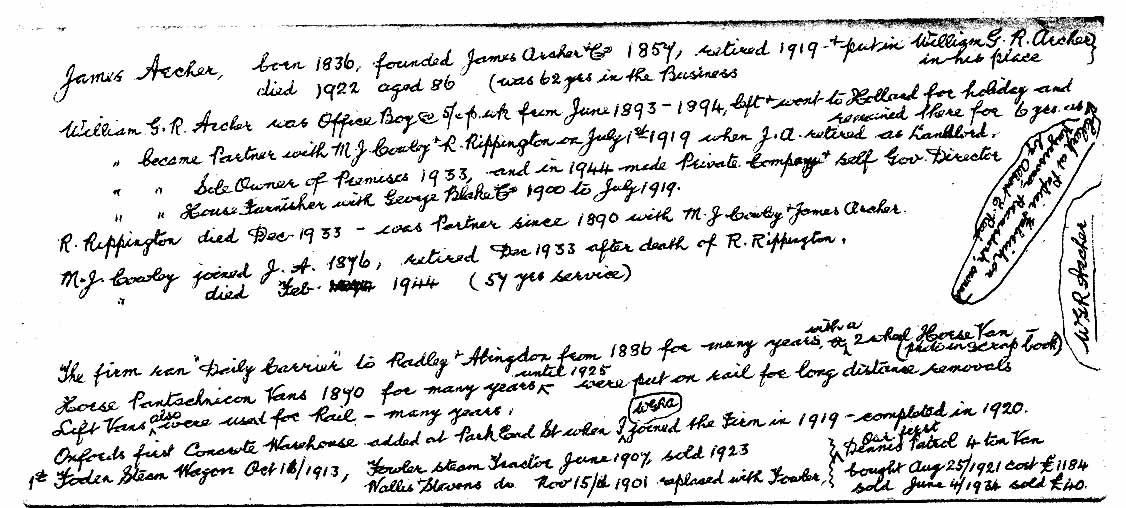 James Archer, born 1836, founded James Archer & Co 1857, retired 1919 + put in William G. R. Archer}
died 1922 aged 86 (was 62 yrs in the Business in his place
William G. R. Archer was Office Boy @ 5/- p.wk from June 1893 - 1894, left + went to Holland for holiday and
remained there for 6 yrs. as
" became Partner with M J Cowley + R. Rippington on July 1st 1919 when J. A. retired as Landlord.
" " Sole Owner of Premises 1933, and in 1944 made Private Company + self Gov. Director
" " House Furnisher with George Blake Co 1900 to July 1919.
R. Rippington died Dec. 1933 - was Partner since 1890 with M. J Cowley + James Archer.
M. J. Cowley joined J. A. 1876, retired Dec 1933 after death of R. Rippington.
" died Feb. 1944 (57 yrs service)
WGR Archer
The firm ran "Daily Carrier" to Radley + Abingdon from 1886 for many years, with a 2 wheel Horse Van
(photo in scrap book)
Horse Pantechnicon Vans 1870 for many years until 1925 were put on rail for long distance removals
Lift Vans also were used for Rail - many years.
Oxfords first Concrete Warehouse added at Park End St when I WGRA joined the Firm in 1919 - completed in 1920.
1st Foden Steam Wagon Oct 16/1913, Fowler Steam Tractor June 1907, sold 1923
Wallis Stevens do Nov 15/th 1901 replaced with Fowler,
Our first Dennis Patrol 4 ton Van
bought Aug 25/1921 cost £1184
sold June 4/1934 sold £40.